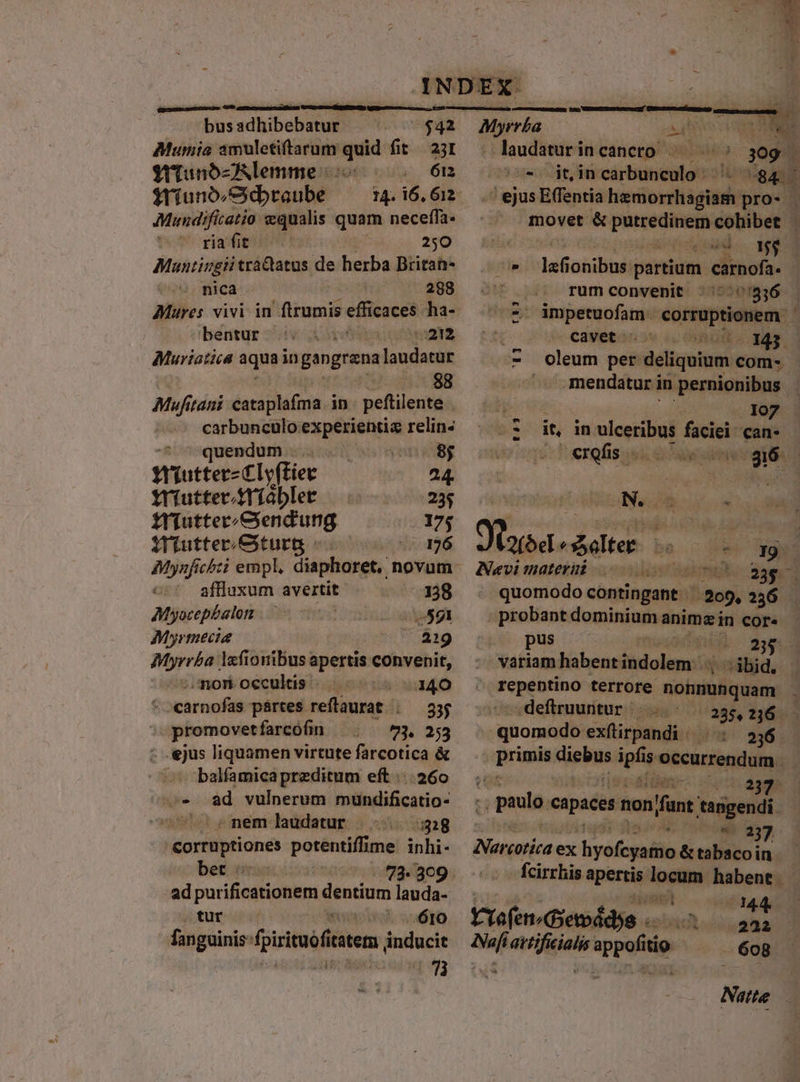 INDEX
busadhibebatur 542
Mumia amuletiſtarum quid fit 231
Mund-Klemme 612
Mund-Schraube 14. 16, 612
Mundificatio æqualis quam neceſſa-
ria fit 250
Muntingii tractatus de herba Britan-
nica 288
Mures vivi in ſtrumis efficaces ha-
bentur 212
Muriatica aqua in gangræna laudatur
88
Muſitani cataplaſma in peſtilente
carbunculo experientiæ relin-
quendum 85
Mutter-Clyſtier 24
Mutter-Mähler 235
Mutter-Senckung 175
Mutter-Sturtz 176
Mynſichti empl. diaphoret. novum
affluxum avertit 138
Myocephalon 591
Myrmecia 219
Myrrha læſionibus apertis convenit,
non occultis 140
carnoſas partes reſtaurat 335
promovet ſarcoſin 73. 253
ejus liquamen virtute ſarcotica &
balſamica præditum eſt 260
- ad vulnerum mundificatio-
nem laudatur 328
corruptiones potentiſſime inhi-
bet 73. 309
ad purificationem dentium lauda-
tur 610
ſanguinis ſpirituoſitatem inducit
73
Myrrha
laudatur in cancro 309
- it, in carbunculo 84
ejus Eſſentia hæmorrhagiam pro-
movet & putredinem cohibet
155
- læſionibus partium carnoſa-
rum convenit 336
- impetuoſam corruptionem
cavet 143
- oleum per deliquium com-
mendatur in pernionibus
107
- it, in ulceribus faciei can-
croſis 316
N.
Nabel-Halter 19
Nævi materni 235
quomodo contingant 209, 236
probant dominium animæ in cor-
pus 235
variam habent indolem ibid.
repentino terrore nonnunquam
deſtruuntur 235, 236
quomodo exſtirpandi 236
primis diebus ipſis occurrendum
237
paulo capaces non ſunt tangendi
237
Narcotica ex hyoſcyamo & tabaco in
ſcirrhis apertis locum habent
144
Naſen-Gewächs 222
Naſi artificialis appoſitio 608
Natte